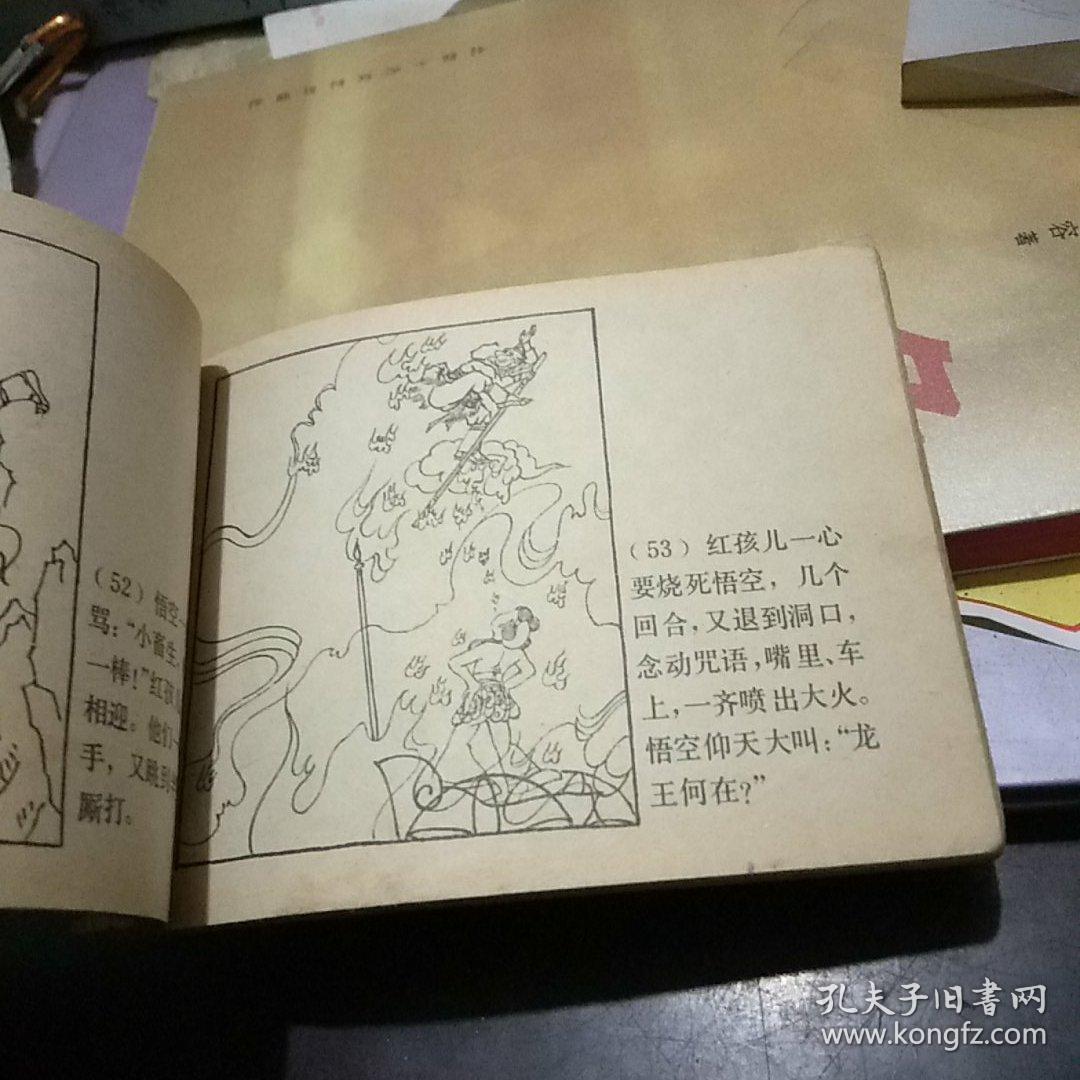 (52) 悟空一
骂：“小畜生，
一棒！”红孩儿
相迎。他们一
手，又跳到半
厮打。
(53) 红孩儿一心
要烧死悟空，几个
回合，又退到洞口，
念动咒语，嘴里、车
上，一齐喷出大火。
悟空仰天大叫：“龙
王何在？”
容著
孔夫子旧書网
www.kongfz.com